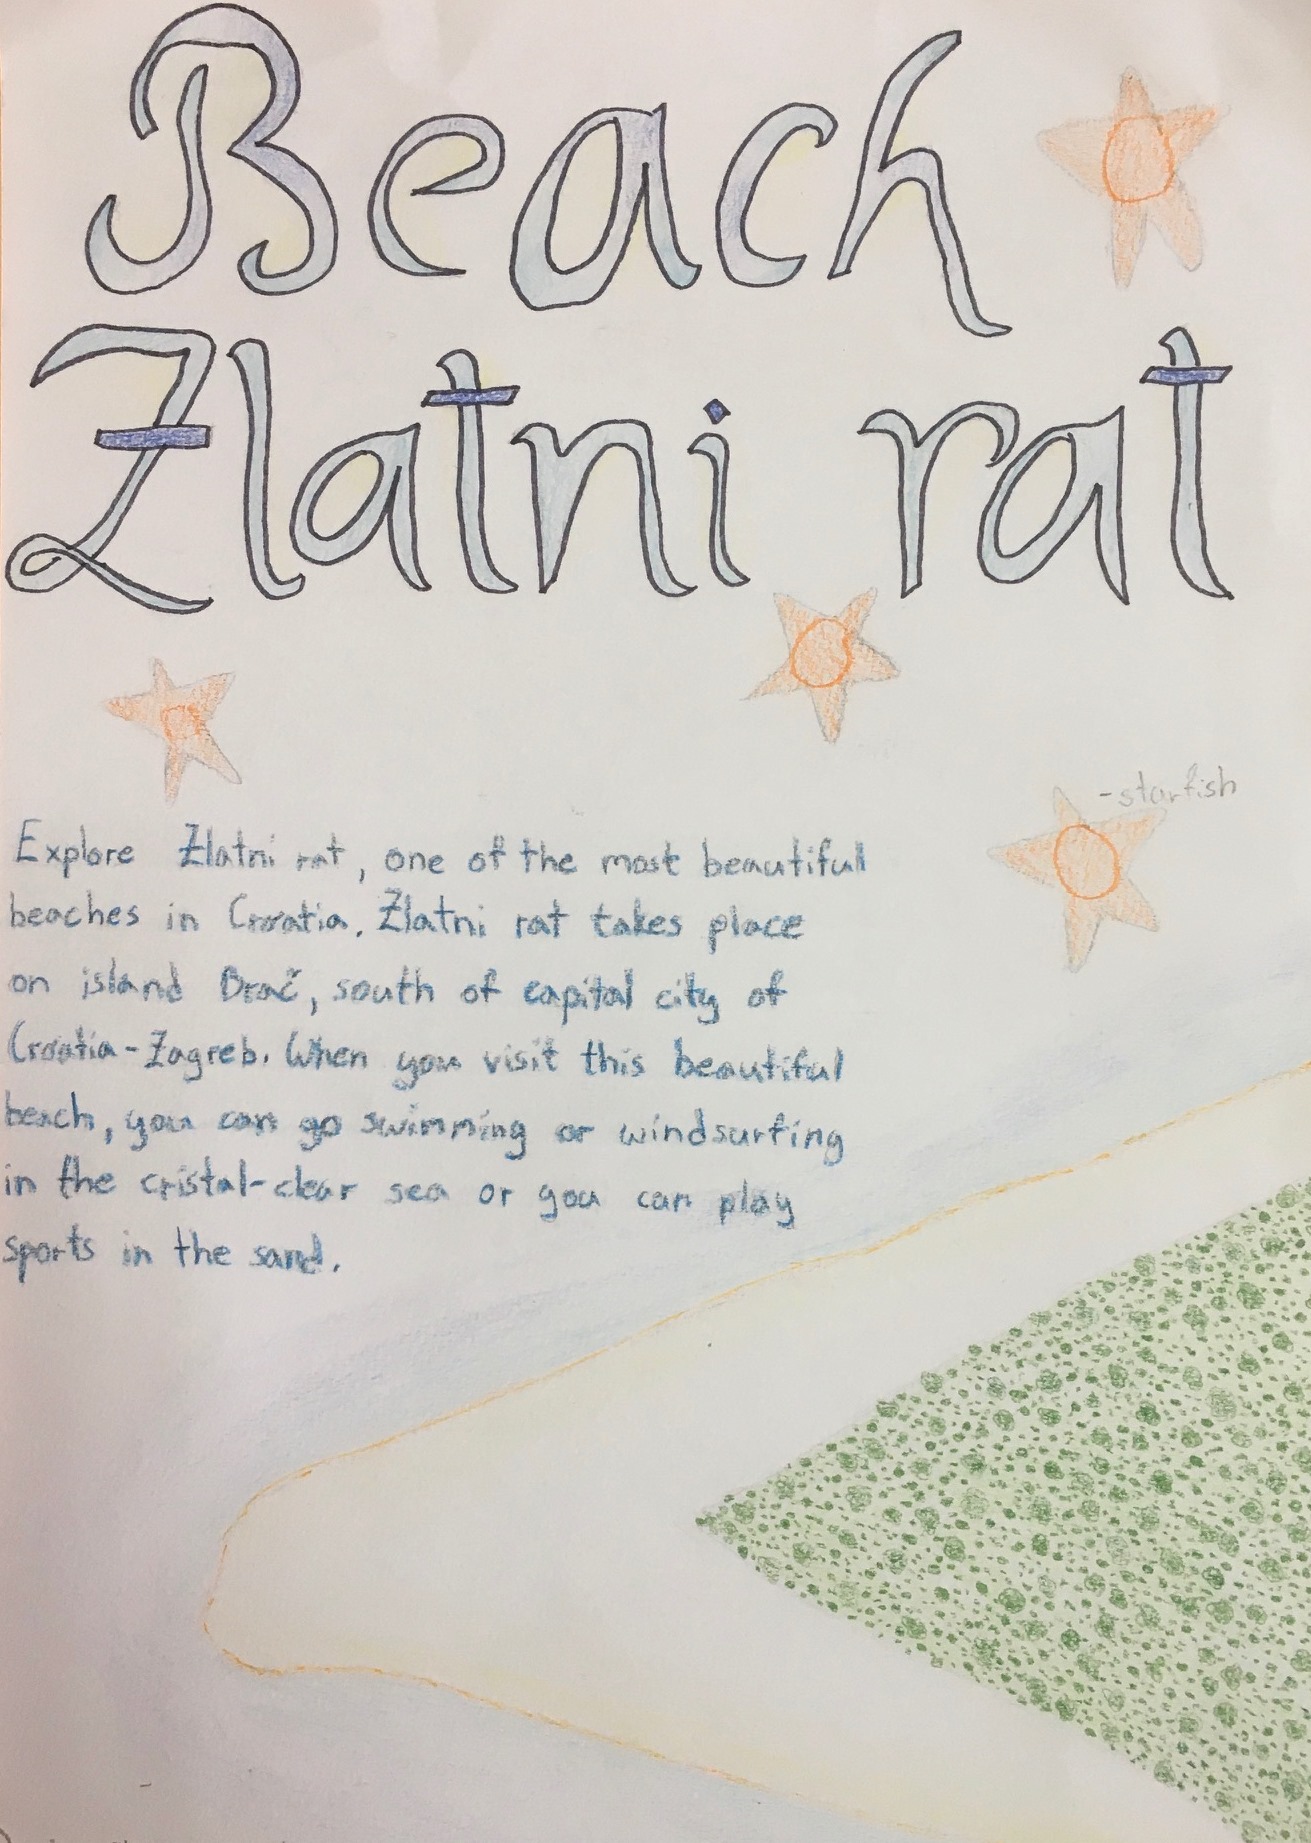 Beach
Zlatni rat
-starfish
Explore Zlatni rat, one of the most beautiful
beaches in Croatia. Zlatni rat takes place
on island Brač, south of capital city of
Croatia-Zagreb. When you visit this beautiful
beach, you can go swimming or windsurfing
in the cristal-clear sea or you can play
sports in the sand.